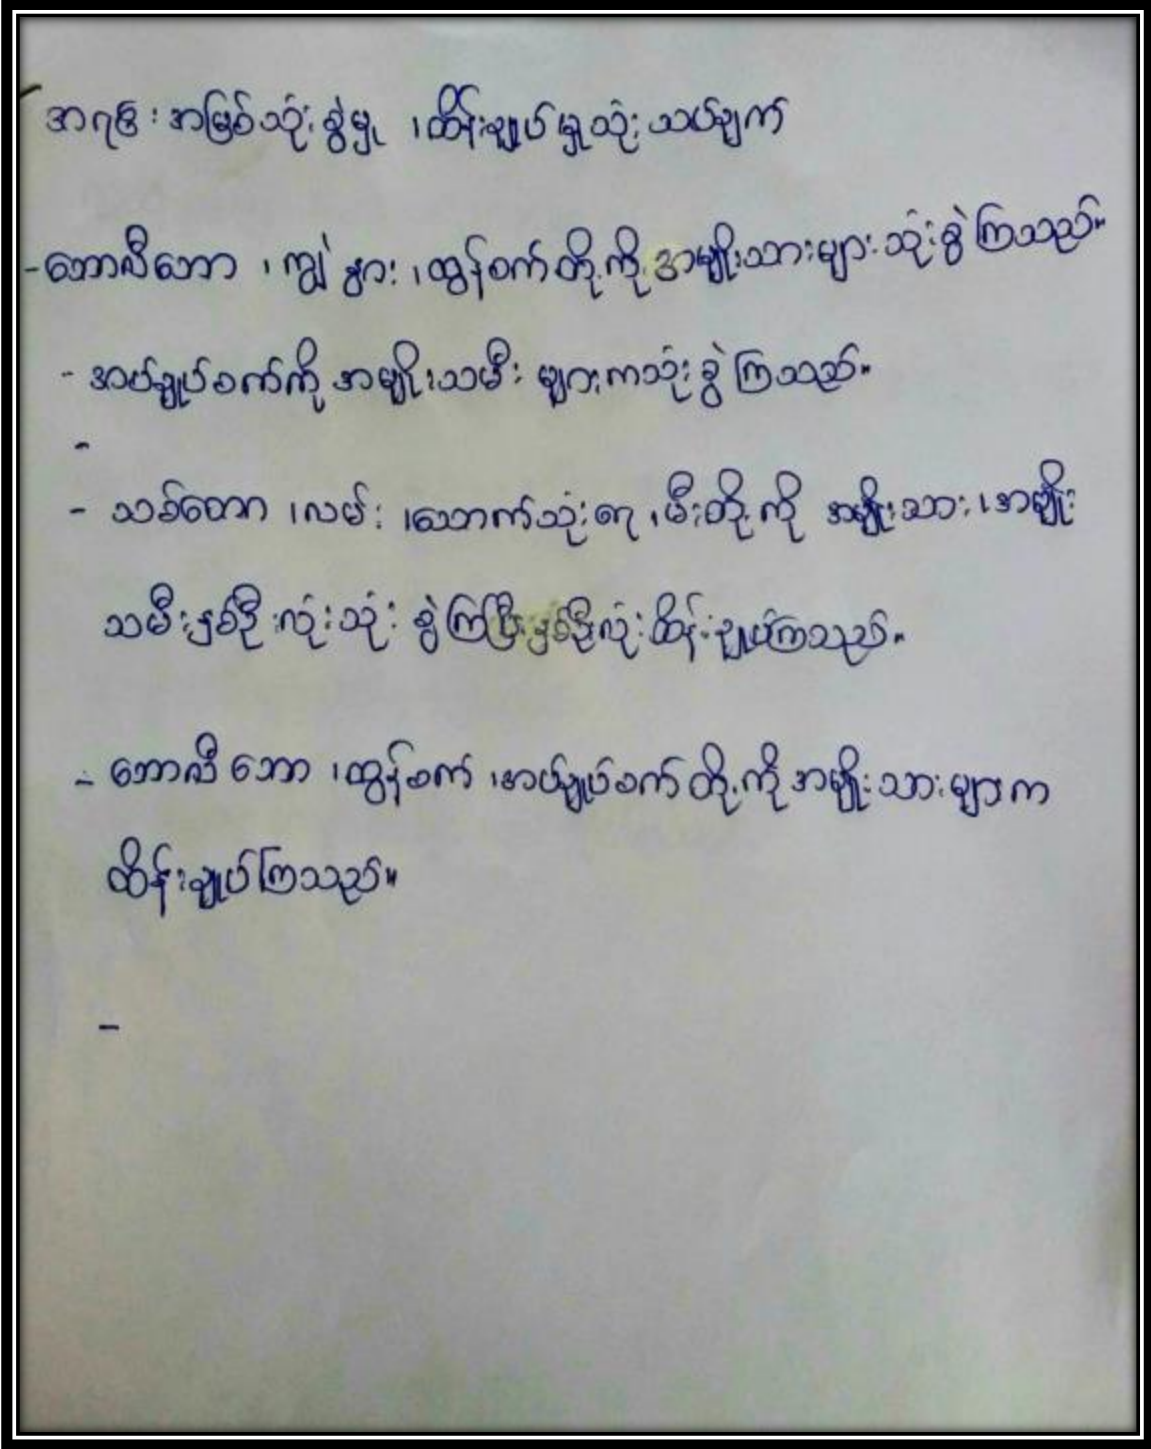 အရင်းအမြစ်သုံးစွဲမှု ၊ထိန်းချုပ်မှုသုံးသပ်ချက်
-ဘောလီဘော ၊ ကျွဲ နွား ၊ထွန်စက်တို့ကို အမျိုးသားများသုံးစွဲကြသည်။
- အပ်ချုပ်စက်ကို အမျိုးသမီး များကသုံးစွဲကြသည်။
-
- သစ်တော ၊လမ်း ၊သောက်သုံးရေ ၊မီးတို့ကို အမျိုးသား၊အမျိုး
သမီးနှစ်ဦးလုံးသုံးစွဲကြပြီးနှစ်ဦးလုံးထိန်းချုပ်ကြသည်။
- ဘောလီဘော ၊ထွန်စက် ၊အပ်ချုပ်စက်တို့ကိုအမျိုးသားများက
ထိန်းချုပ်ကြသည်။
-